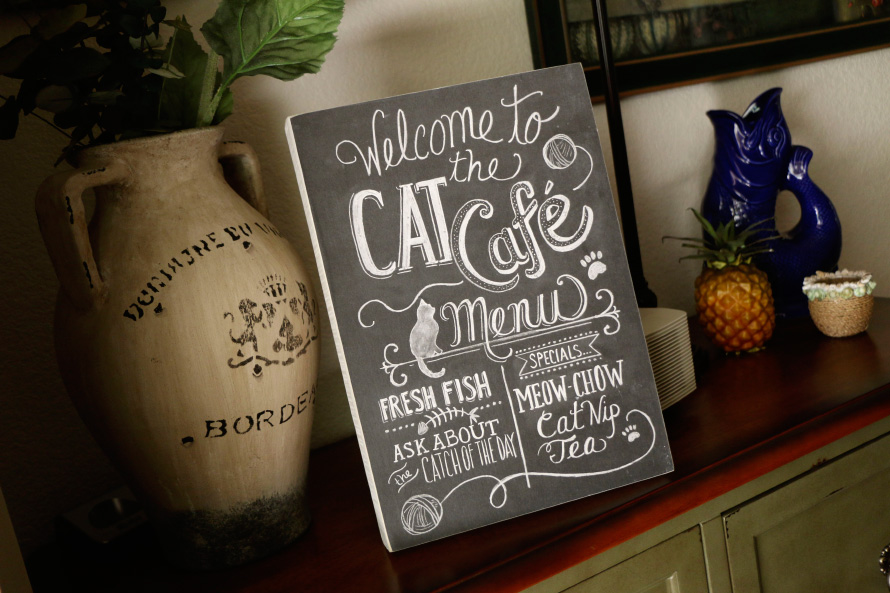 Welcome to
the
CAT Café
Menu
FRESH FISH
ASK ABOUT
the CATCH OF THE DAY
SPECIALS...
MEOW-CHOW
Cat Nip
Tea
DOMAINE DU
BORDEA